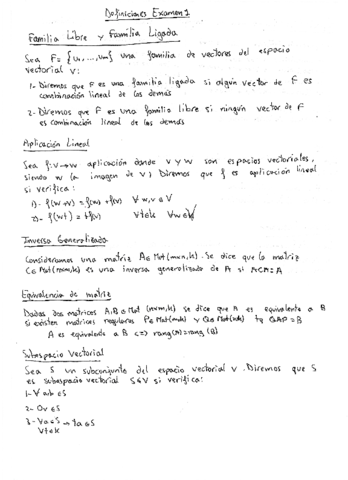 Definiciones Examen 1
Familia Libre y Familia Ligada
Sea F = {u₁, ..., um} una familia de vectores del espacio
vectorial V:
1- Diremos que F es una familia ligada si algún vector de F es
combinación lineal de los demás
2- Diremos que F es una familia libre si ningún vector de F
es combinación lineal de los demás
Aplicación Lineal
Sea f: V→W aplicación donde V y W son espacios vectoriales,
siendo W (a imagen de V) Diremos que f es aplicación lineal
si verifica:
1)- f(w+v) = f(w)+f(v) ∀ w,v ∈ V
2)- f(wt) = tf(v) ∀t∈k ∀w∈V
Inversa Generalizada
Consideramos una matriz A∈Mat(mxn,k). Se dice que la matriz
C∈Mat(nxm,k) es una inversa generalizada de A si ACA=A
Equivalencia de matriz
Dadas dos matrices A,B∈Mat (nxm,k) se dice que A es equivalente a B
si existen matrices regulares P∈Mat(m,k) y Q∈Mat(n,k) tq QAP=B
A es equivalente a B <=> rang(A)=rang(B)
Subespacio Vectorial
Sea S un subconjunto del espacio vectorial V. Diremos que S
es subespacio vectorial S≤V si verifica:
1-∀ a,b ∈S
2- 0v ∈S
3-∀a∈S → ta∈S
∀t∈k